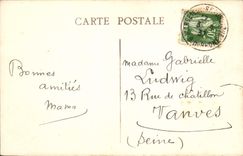 CARTE POSTALE
Bonnes
amitiés
Mams
madame Gabrielle
Ludwig
13 Rue de chatillon
Vanves
(Seine)